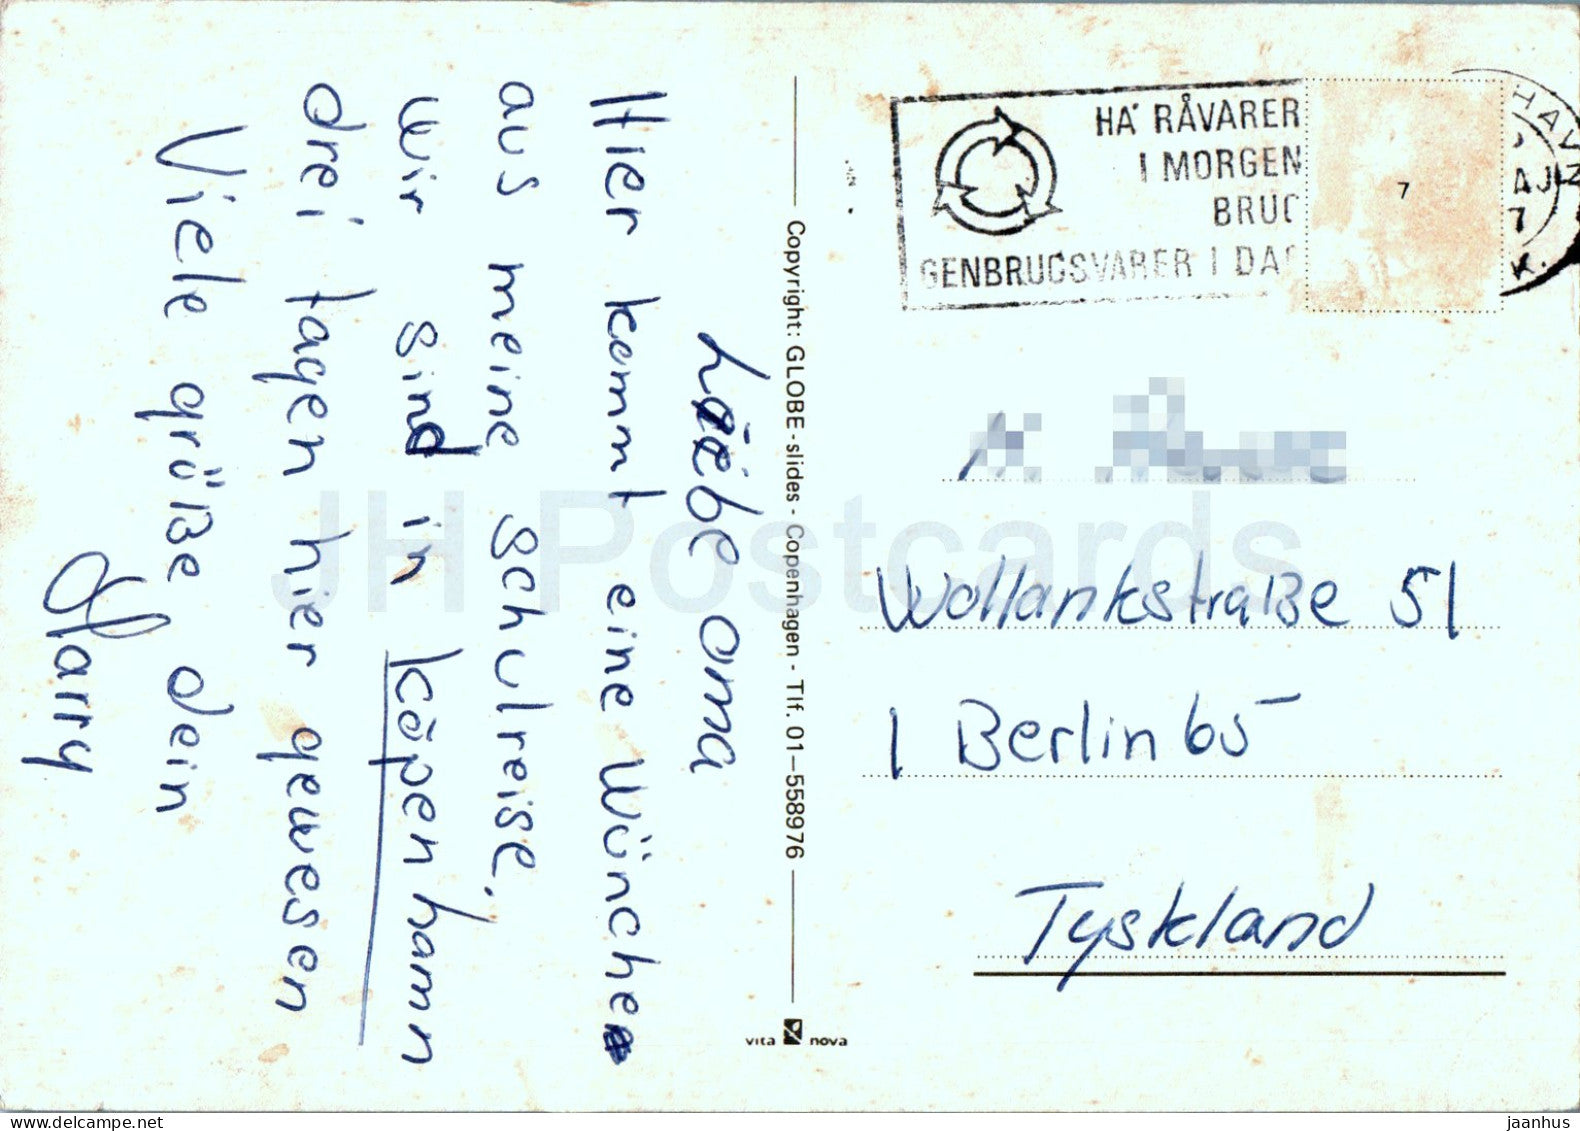 Liebe oma
Hier kommt eine Wünche
aus meine schulreise.
Wir sind in köpenhamn
drei tagen hier gewesen
Viele grüße dein
Harry
Copyright: GLOBE-slides - Copenhagen - Tlf. 01-558976
vita nova
HA' RÅVARER
I MORGEN
BRUG
GENBRUGSVARER I DAG
HAVN
7
7
K.
Wollankstraße 51
1 Berlin 65
Tyskland
JH Postcards
www.delcampe.net
jaanhus